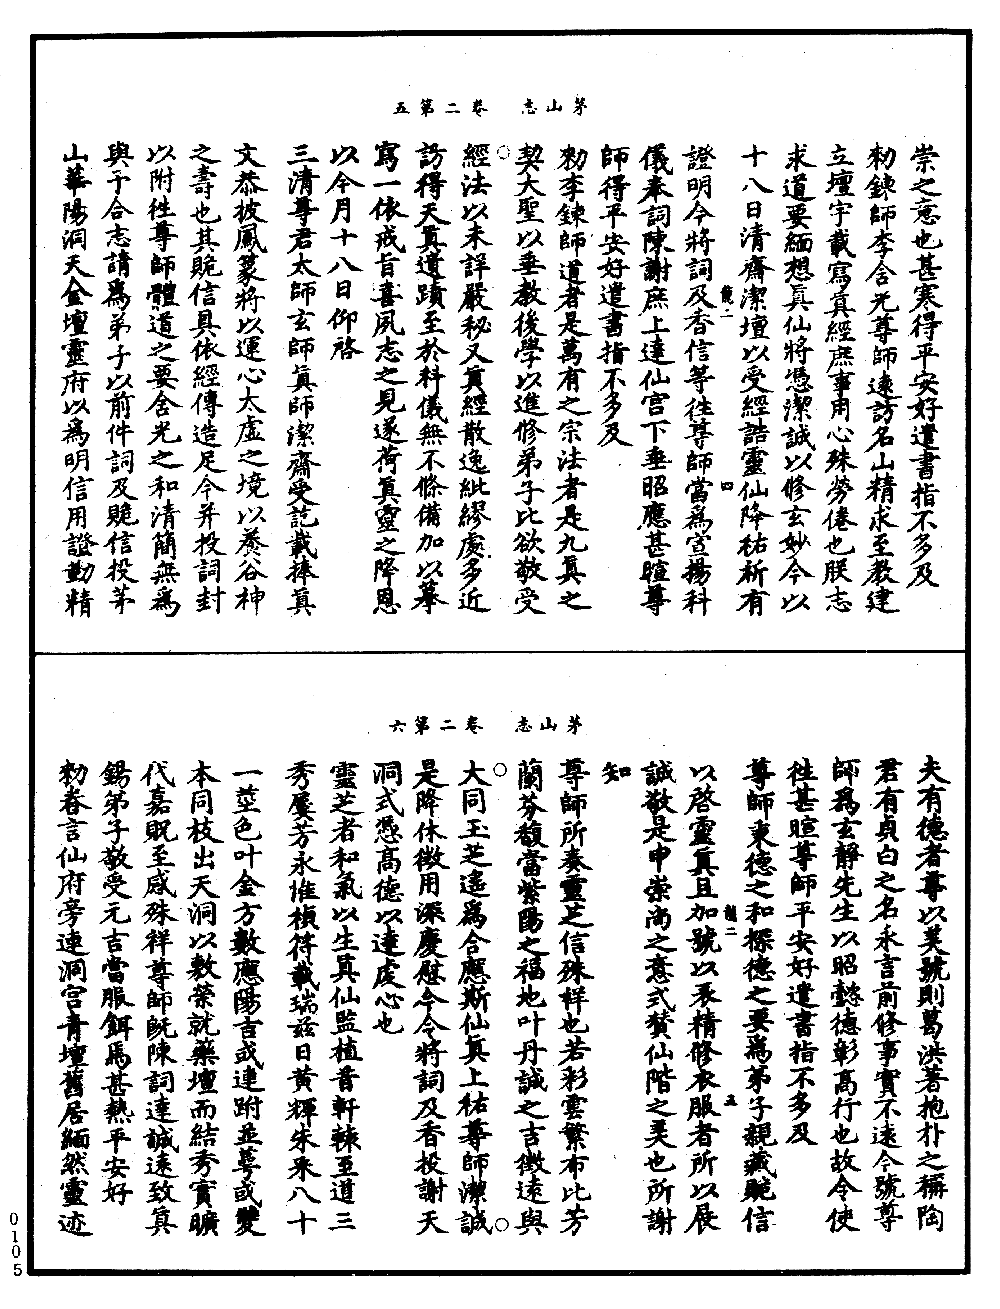 茅山志　卷二第五
崇之意也甚寒得平安好遣書指不多及
勑鍊師李含光尊師遠訪名山精求至教建
立壇宇載寫真經庶事用心殊勞倦也朕志
求道要緬想真仙將憑潔誠以修玄妙今以
十八日清齋潔壇以受經誥靈仙降祐祈有
證明今將詞及香信等往尊師當爲宣揚科
儀奉詞陳謝庶上達仙宮下垂昭應甚暄尊
師得平安好遣書指不多及
勑李鍊師道者是萬有之宗法者是九真之
契大聖以垂教後學以進修弟子比欲敬受
經法以未詳嚴秘又真經散逸紕繆處多近
訪得天真道蹟至於科儀無不條備加以摹
寫一依戒旨喜夙志之見遂荷真靈之降恩
以今月十八日仰啓
三清尊君太師玄師真師潔齋受訖載捧真
文恭披鳳篆將以運心太虛之境以養谷神
之壽也其貺信具依經傳造足今并投詞封
以附往尊師體道之要含光之和清簡無爲
與予合志請爲弟子以前件詞及貺信投茅
山華陽洞天金壇靈府以爲明信用證勤精
茅山志　卷二第六
夫有德者尊以美號則葛洪著抱朴之稱陶
君有貞白之名永言前修事實不遠今號尊
師爲玄靜先生以昭懿德彰高行也故令使
往甚暄尊師平安好遣書指不多及
尊師秉德之和探德之要爲弟子親藏貺信
以啓靈真且加號以表精修衣服者所以展
誠敬是申崇尚之意式贊仙階之美也所謝
知
尊師所奏靈芝信殊祥也若彩雲繁布比芳
蘭芬馥當紫陽之福地叶丹誠之吉徵遠與
大同玉芝遙爲合應斯仙真上祐尊師潔誠
是降休徵用深慶慰今令將詞及香投謝天
洞式憑高德以達虔心也
靈芝者和氣以生真仙監植昔軒轅至道三
秀屢芳永惟禎符載瑞茲日黄輝朱釆八十
一莖色叶金方數應陽吉或連跗並蕚或雙
本同枝出天洞以敷榮就藥壇而結秀實曠
代嘉貺至感殊祥尊師既陳詞達誠遠致真
錫弟子敬受元吉當服餌焉甚熱平安好
勑眷言仙府旁連洞宮青壇舊居緬然靈迹
0105